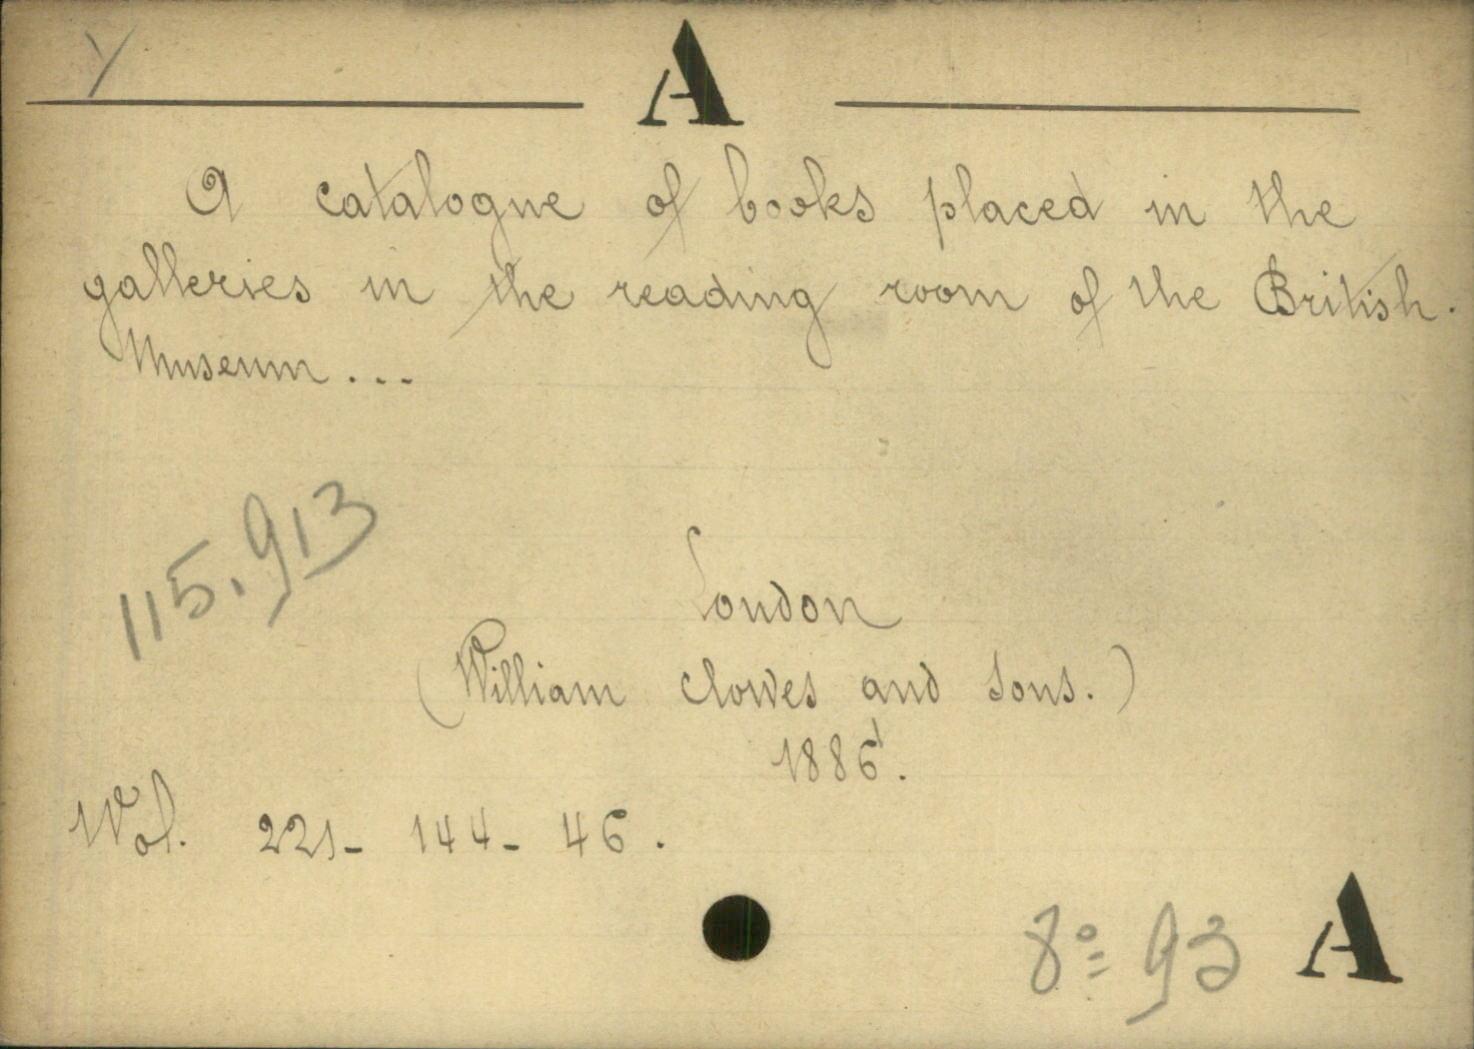 Y
A
A catalogue of books placed in the
galleries in the reading room of the British.
Museum...
115.913
London
(William Clowes and Sons.)
1886.
Vol. 221- 144- 46.
8º 93 A